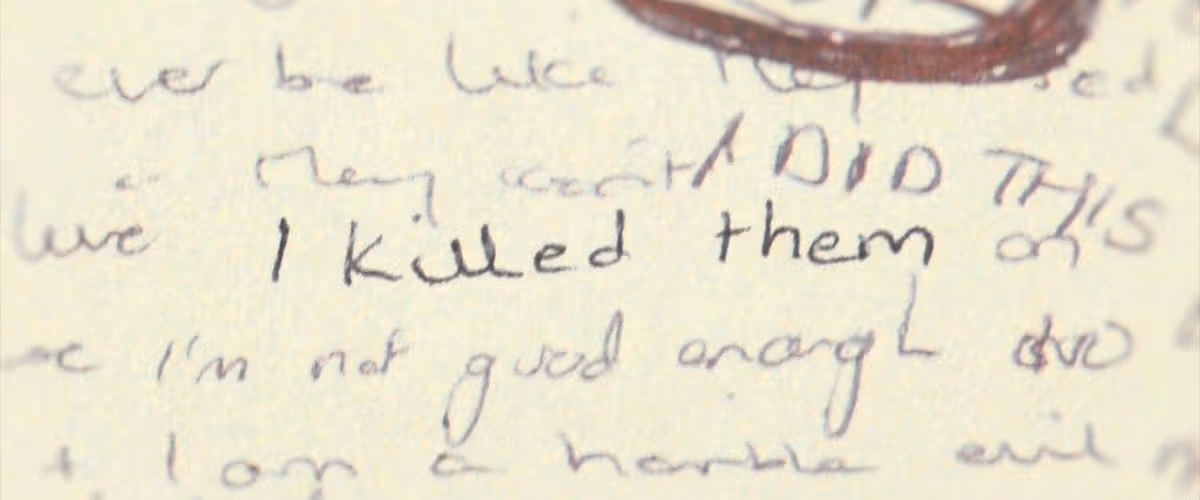 ever be like they
They can't I DID THIS
live I killed them on
I'm not good enough
+ I am a horrible evil